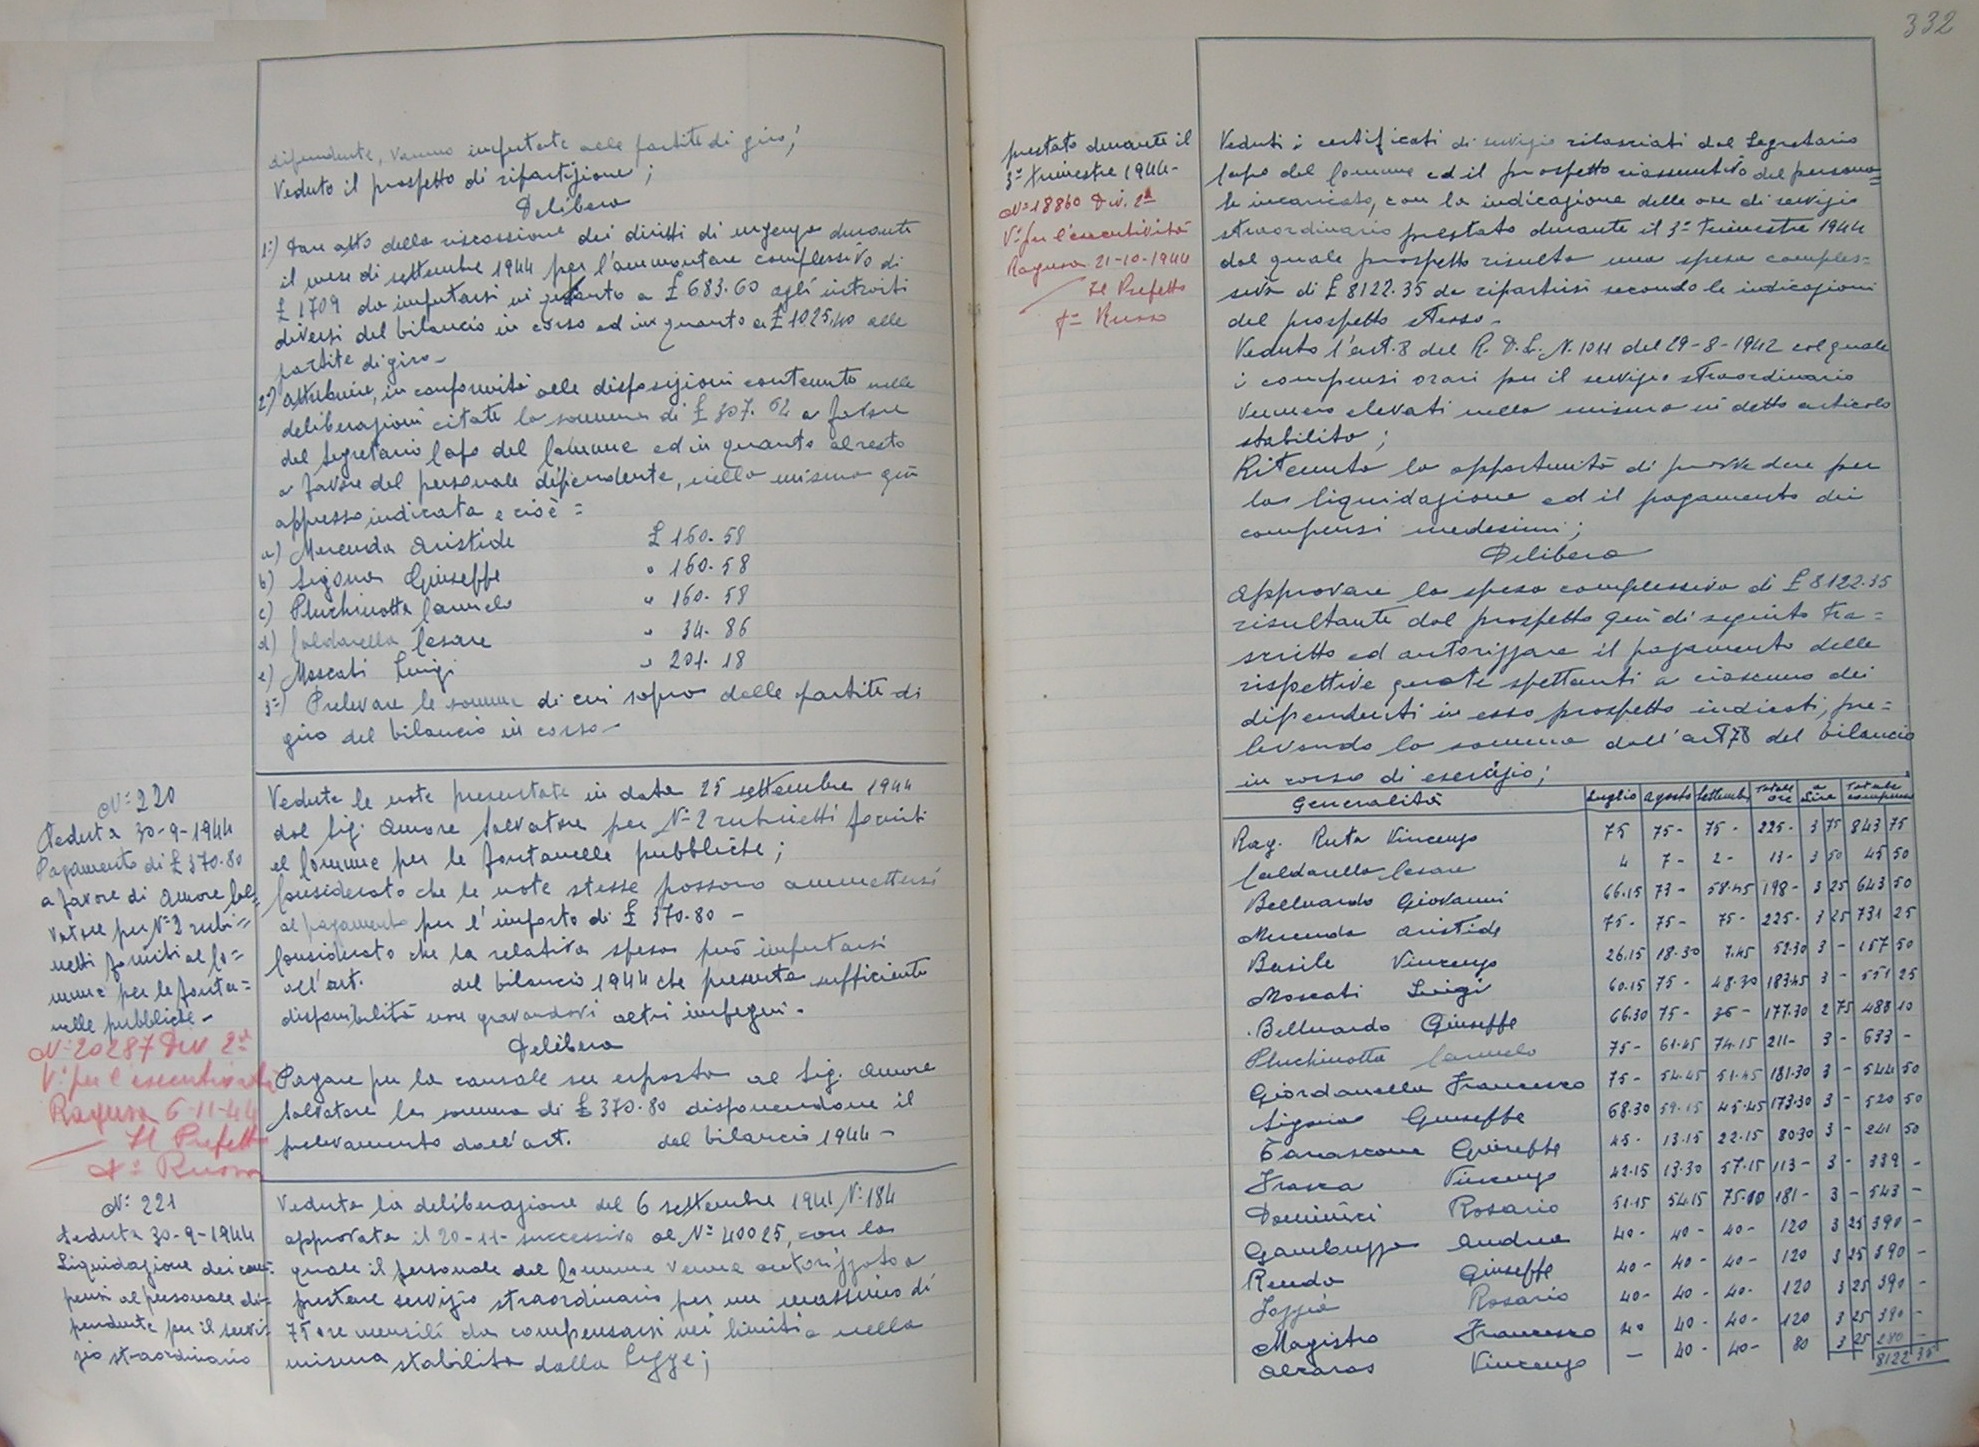 332
dipendente, vanno imputate alle partite di giro;
Veduto il prospetto di ripartizione;
Delibera
1°) Dare atto della riscossione dei diritti di urgenza durante
il mese di settembre 1944 per l'ammontare complessivo di
£ 1709 da imputarsi in quanto a £ 683.60 agli introiti
diversi del bilancio in corso ed in quanto a £ 1025,40 alle
partite di giro -
2°) Attribuire, in conformità alle disposizioni contenute nelle
deliberazioni citate la somma di £ 307.62 a favore
del Segretario Capo del Comune ed in quanto al resto
a favore del personale dipendente, nella misura quì
appresso indicata e cioè =
a) Mercuda Aristide £ 160.58
b) Sigona Giuseppe " 160.58
c) Pluchinotta Carmelo " 160.58
d) Caldarella Cesare " 34.86
e) Moscati Luigi " 201.18
3°) Prelevare le somme di cui sopra dalle partite di
giro del bilancio in corso -
N° 220
Seduta 30-9-1944
Pagamento di £ 370.80
a favore di Amore Sal=
vatore per N° 2 rubi=
netti forniti al Co=
mune per le fonta=
nelle pubbliche -
N° 20287 Div. 2ª
V° per l'esecutività
Ragusa 6-11-44
Il Prefetto
F° Russo
Vedute le note presentate in data 25 settembre 1944
dal Sig. Amore Salvatore per N° 2 rubinetti forniti
al Comune per le fontanelle pubbliche;
Considerato che le note stesse possono ammettersi
al pagamento per l'importo di £ 370.80 -
Considerato che la relativa spesa può imputarsi
all'art. del bilancio 1944 che presenta sufficiente
disponibilità non gravandovi altri impegni.
Delibera
Pagare per la causale su esposta al Sig. Amore
Salvatore la somma di £ 370.80 disponendone il
prelevamento dall'art. del bilancio 1944 -
N° 221
Seduta 30-9-1944
Liquidazione dei com=
pensi al personale di=
pendente per il servi=
zio straordinario
Veduta la deliberazione del 6 settembre 1941 N° 184
approvata il 20-11- successivo al N° 40025, con la
quale il personale del Comune venne autorizzato a
prestare servizio straordinario per un massimo di
75 ore mensili da compensarsi nei limiti e nella
misura stabilita dalla legge;
prestato durante il
3° trimestre 1944 -
N° 18860 Div. 2ª
V° per l'esecutività
Ragusa 21-10-1944
Il Prefetto
F° Russo
Veduti i certificati di servizio rilasciati dal Segretario
Capo del Comune ed il prospetto riassuntivo del persona=
le incaricato, con la indicazione delle ore di servizio
straordinario prestato durante il 3° trimestre 1944
dal quale prospetto risulta una spesa comples=
siva di £ 8122.35 da ripartirsi secondo le indicazioni
del prospetto stesso -
Veduto l'art. 8 del R. D. L. N. 1011 del 29-8-1942 col quale
i compensi orari per il servizio straordinario
vennero elevati nella misura in detto articolo
stabilita;
Ritenuta la opportunità di provvedere per
la liquidazione ed il pagamento dei
compensi medesimi;
Delibera
Approvare la spesa complessiva di £ 8122.35
risultante dal prospetto quì di seguito tra=
scritto ed autorizzare il pagamento delle
rispettive quote spettanti a ciascuno dei
dipendenti in esso prospetto indicati, pre=
levando la somma dall'art 78 del bilancio
in corso di esercizio;
Generalità Luglio Agosto Settembre Totale ore a Lire Totale compenso
Rag. Ruta Vincenzo 75 75- 75- 225- 3 75 843 75
Caldarella Cesare 4 7- 2- 13- 3 50 45 50
Belluardo Giovanni 66.15 73- 58.45 198- 3 25 643 50
Mercuda Aristide 75- 75- 75- 225- 3 25 731 25
Basile Vincenzo 26.15 18.30 7.45 52.30 3 - 157 50
Moscati Luigi 60.15 75- 48.30 183.45 3 - 551 25
Belluardo Giuseppe 66.30 75- 36- 177.30 2 75 488 10
Pluchinotta Carmelo 75- 61.45 74.15 211- 3 - 633 -
Giordanella Francesco 75- 54.45 51.45 181.30 3 - 544 50
Sigona Giuseppe 68.30 59.15 45.45 173.30 3 - 520 50
Tarascone Giuseppe 45- 13.15 22.15 80.30 3 - 241 50
Frasca Vincenzo 42.15 13.30 57.15 113- 3 - 339 -
Dominici Rosario 51.15 54.15 75.00 181- 3 - 543 -
Gambuzza Andrea 40- 40- 40- 120 3 25 390 -
Renda Giuseppe 40- 40- 40- 120 3 25 390 -
Foggia Rosario 40- 40- 40- 120 3 25 390 -
Magistro Francesco 40 40- 40- 120 3 25 390 -
Vincenzo - 40- 40- 80 3 25 280 -
8122 35